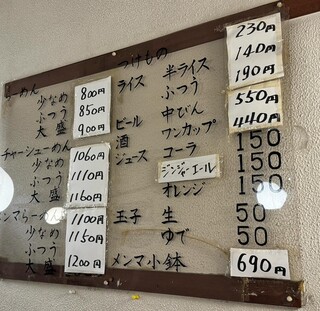 らーめん
少なめ 800円
ふつう 850円
大盛 900円
チャーシューめん
少なめ 1060円
ふつう 1110円
大盛 1160円
少なめ 1100円
ふつう 1150円
大盛 1200円
つけもの 230円
ライス 半ライス 140円
ふつう 190円
ビール 中びん 550円
酒 ワンカップ 440円
ジュース コーラ 150
ジンジャーエール 150
オレンジ 150
玉子 生 50
ゆで 50
メンマ小鉢 690円